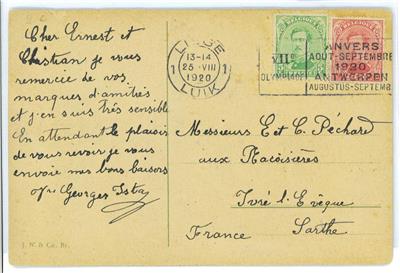 Cher Ernest et
Christian je vous
remercie de vos
marques d'amitiés
et j'en suis très sensible
En attendant le plaisir
de vous revoir je vous
envoie mes bons baisers
Georges
LIEGE
13-14
25·VIII
1920
LUIK
1 1
VIIe
ANVERS
AOUT-SEPTEMBRE
1920
ANTWERPEN
AUGUSTUS-SEPTEMB
Messieurs E et C. Péchard
aux Racoisières
Ivré l'Evêque
Sarthe
France
J. N. & Co., Br.